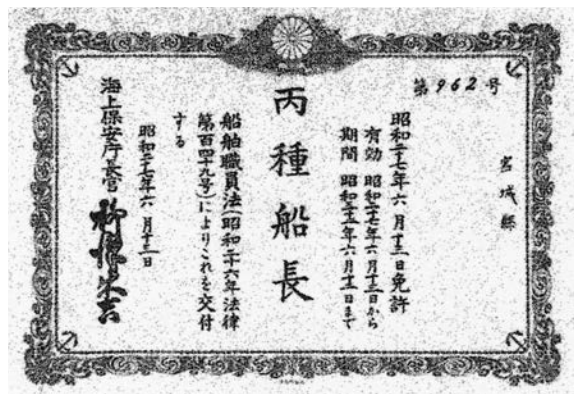 第962号
宮城縣
昭和二十七年六月十三日免許
有効 昭和二十七年六月十三日から
期間 昭和三十二年六月十二日まで
丙種船長
船舶職員法(昭和二十六年法律
第百四十九号)によりこれを交付
する
昭和二十七年六月十三日
海上保安庁長官 柳澤米吉